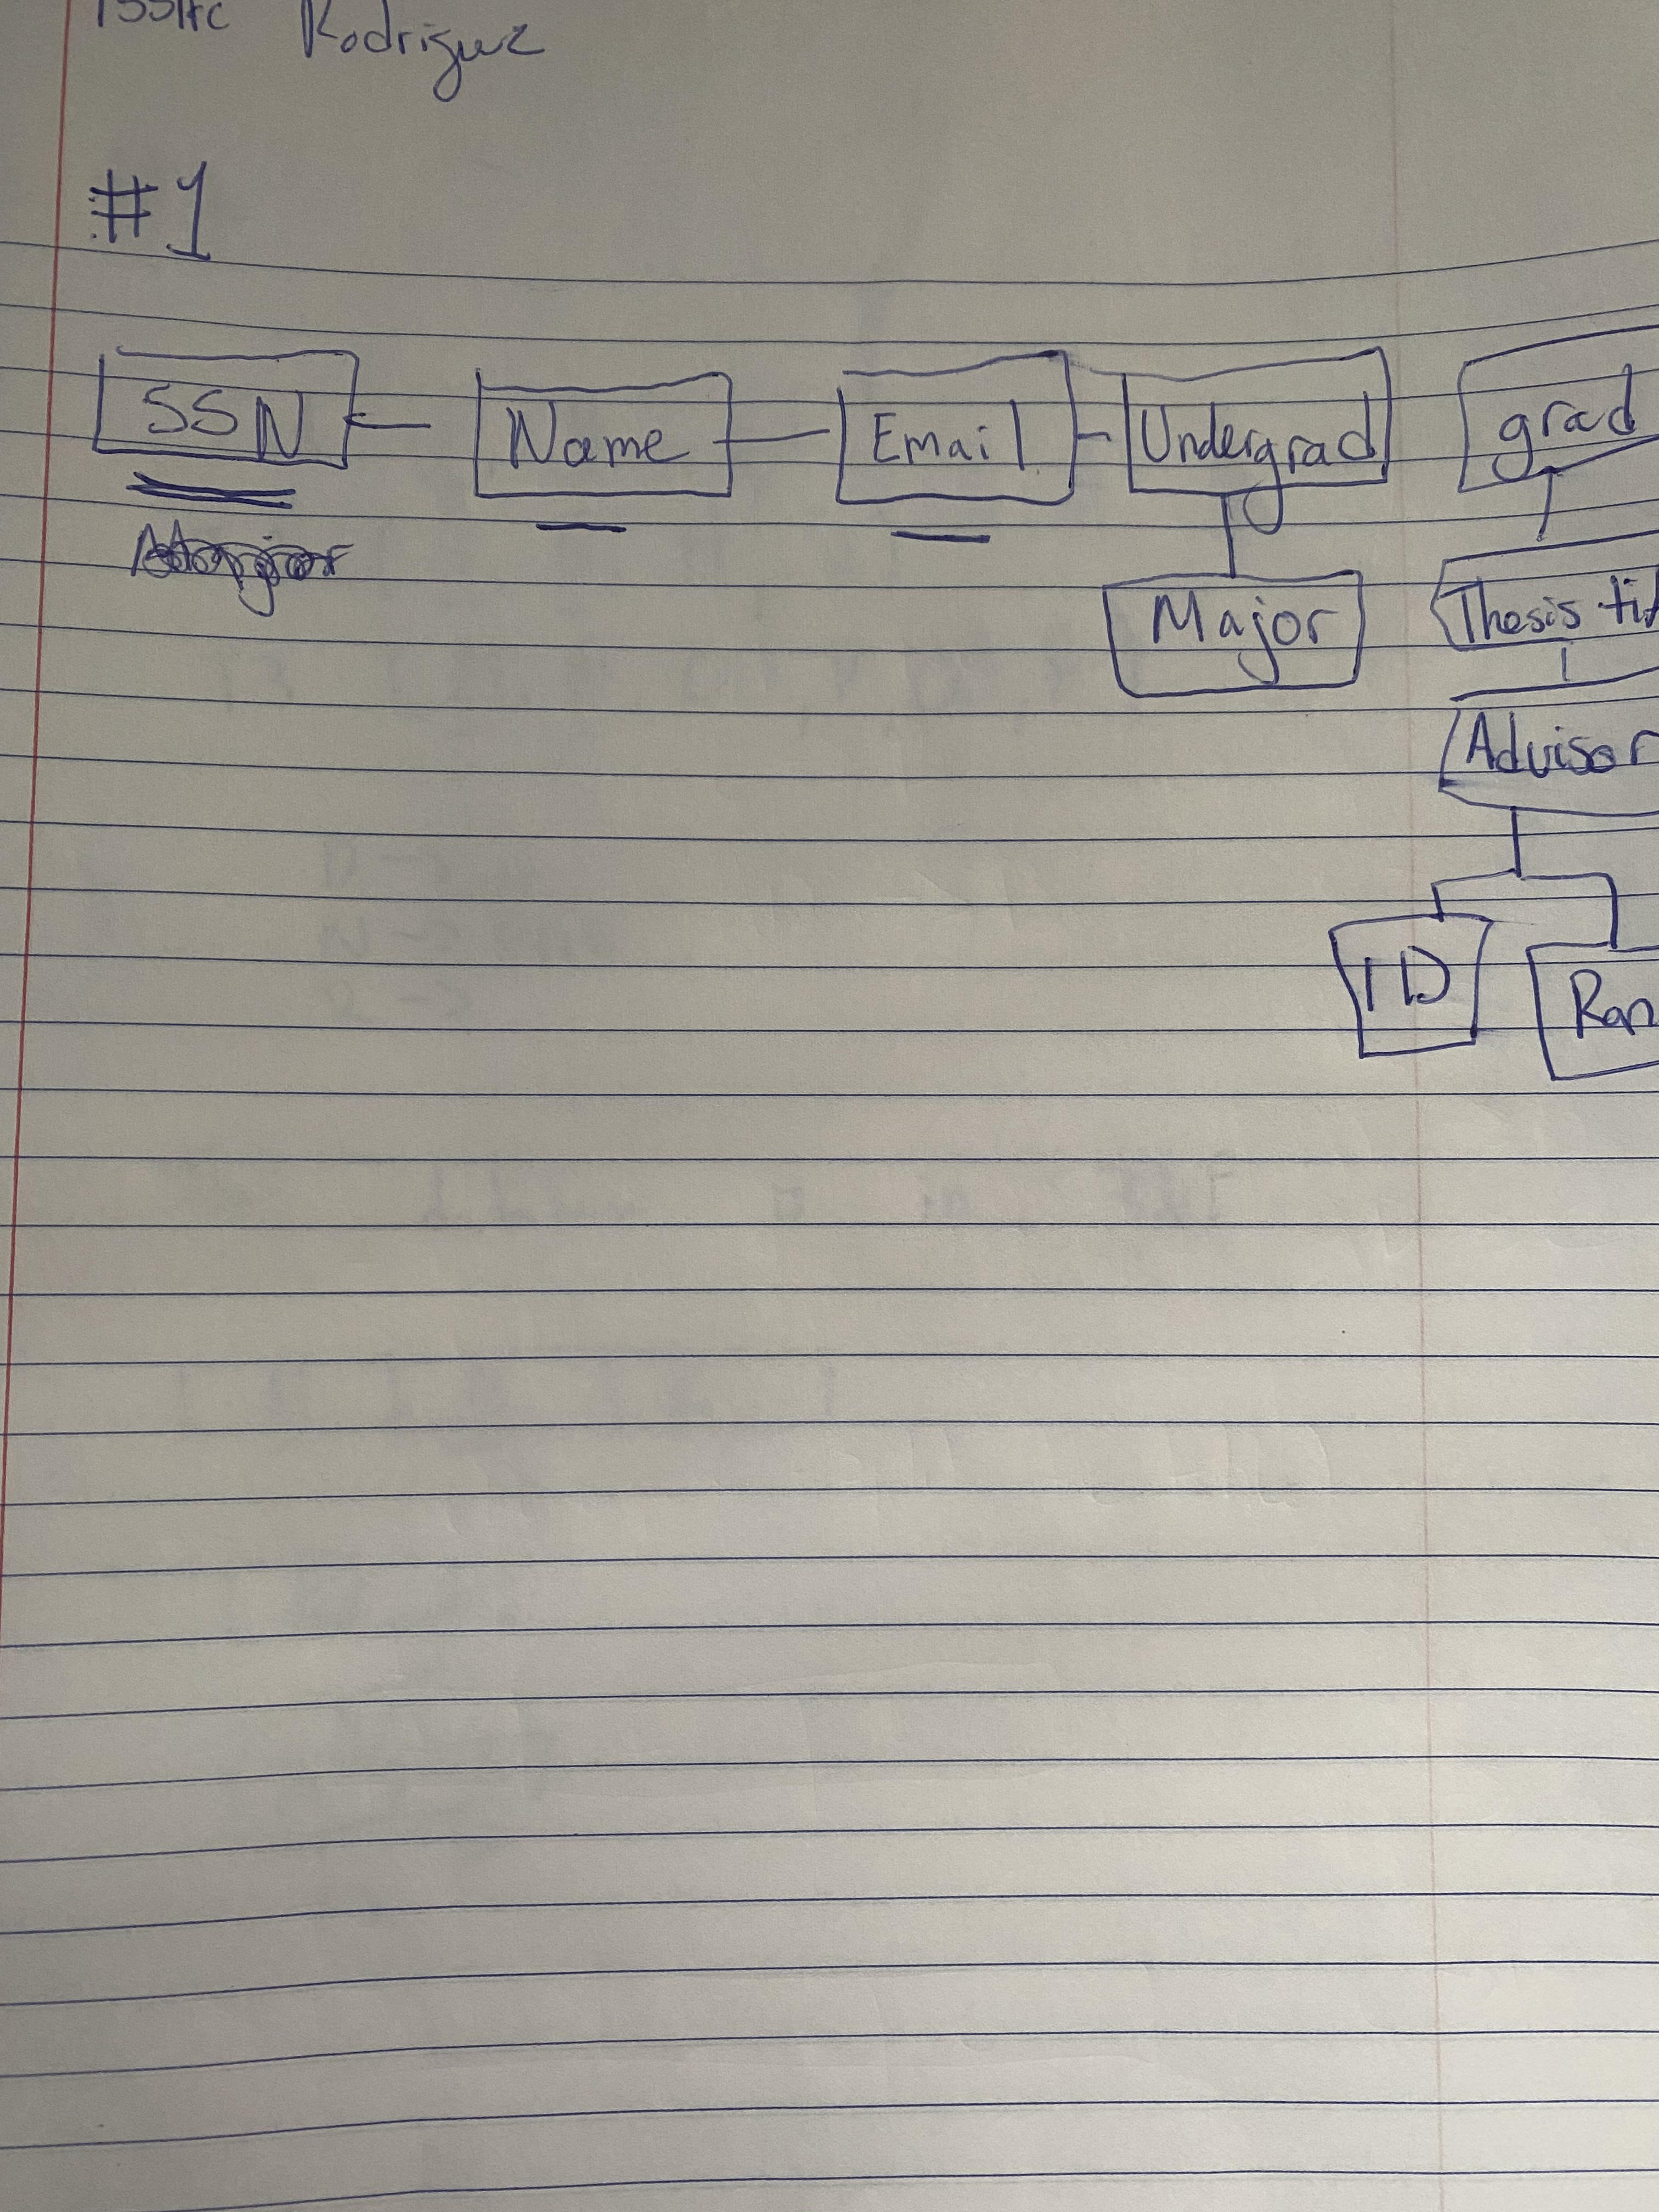 Rodriguez
#1
SSN Name Email Undergrad grad
Major Thesis
Advisor
ID